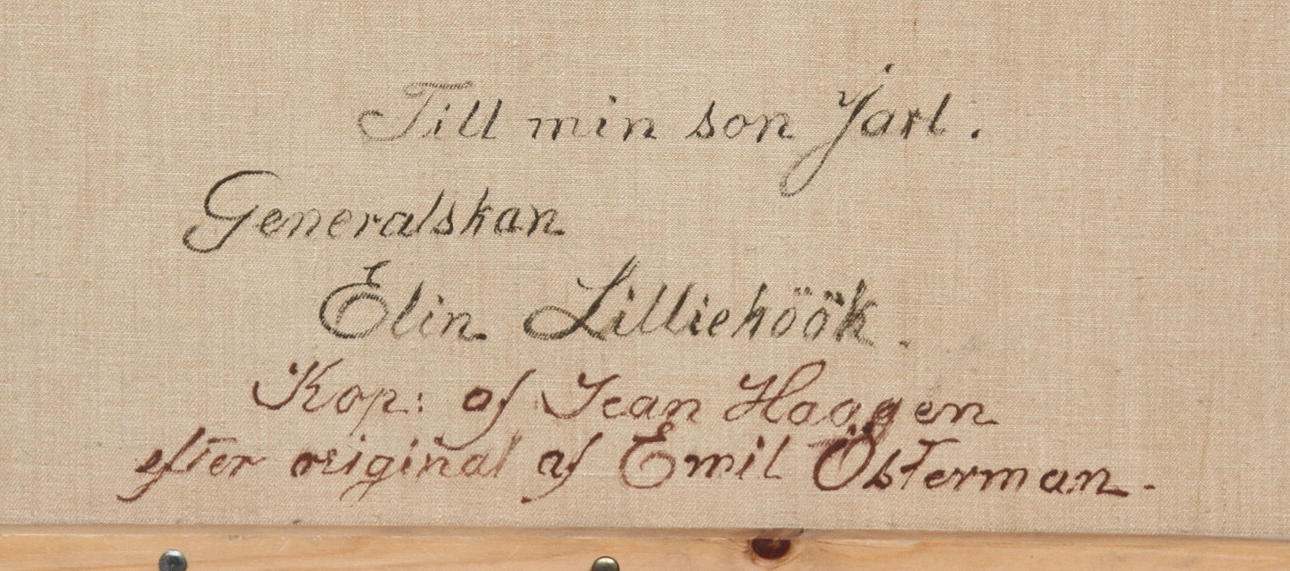 Till min son Jarl.
Generalskan
Elin Lilliehöök.
Kop: af Jean Haagen
efter original af Emil Österman.